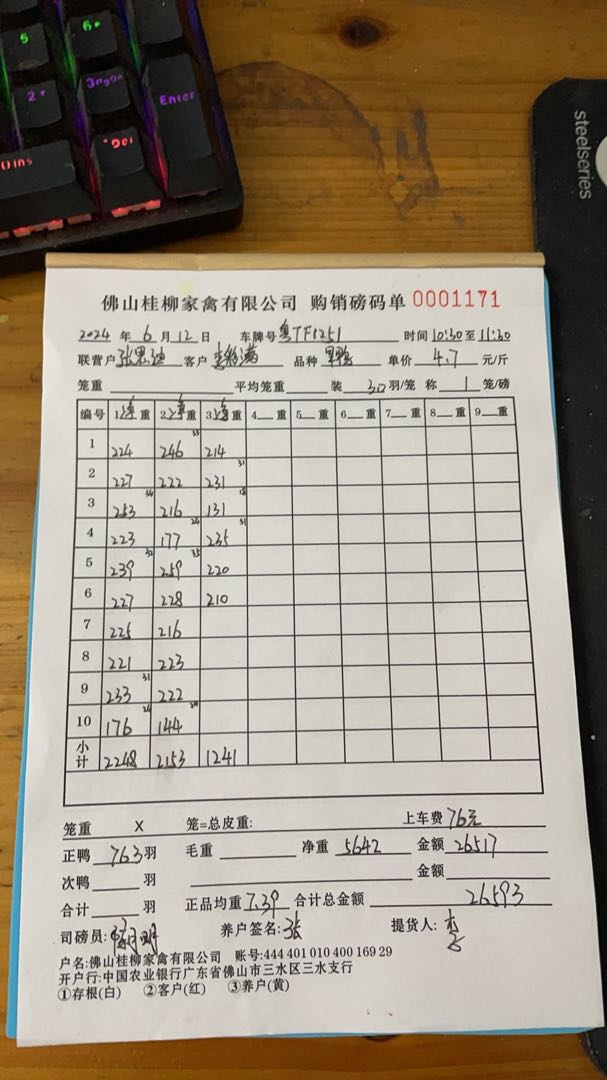 5
6
2
3 PgDn
Enter
0 Ins
. Del
steelseries
佛山桂柳家禽有限公司 购销磅码单 0001171
2024 年 6 月 12 日 车牌号 粤TF1251 时间 10:30 至 11:30
联营户 张思迪 客户 品种 单价 4.7 元/斤
笼重 平均笼重 装 30 羽/笼 称 1 笼/磅
编号 1 净 重 2 净 重 3 净 重 4 重 5 重 6 重 7 重 8 重 9 重
1 224 246 33 214
2 227 222 231 31
3 253 34 216 131 18
4 223 177 24 235 31
5 239 32 259 35 220
6 227 228 210
7 225 216
8 221 223
9 233 31 222
10 176 24 144 20
小计 2248 2153 1241
笼重 X 笼=总皮重: 上车费 76元
正鸭 763 羽 毛重 净重 5642 金额 26517
次鸭 羽 金额
合计 羽 正品均重 7.39 合计总金额 26593
司磅员: 养户签名: 张 提货人: 李
户名:佛山桂柳家禽有限公司 账号:444 401 010 400 169 29
开户行:中国农业银行广东省佛山市三水区三水支行
①存根(白) ②客户(红) ③养户(黄)